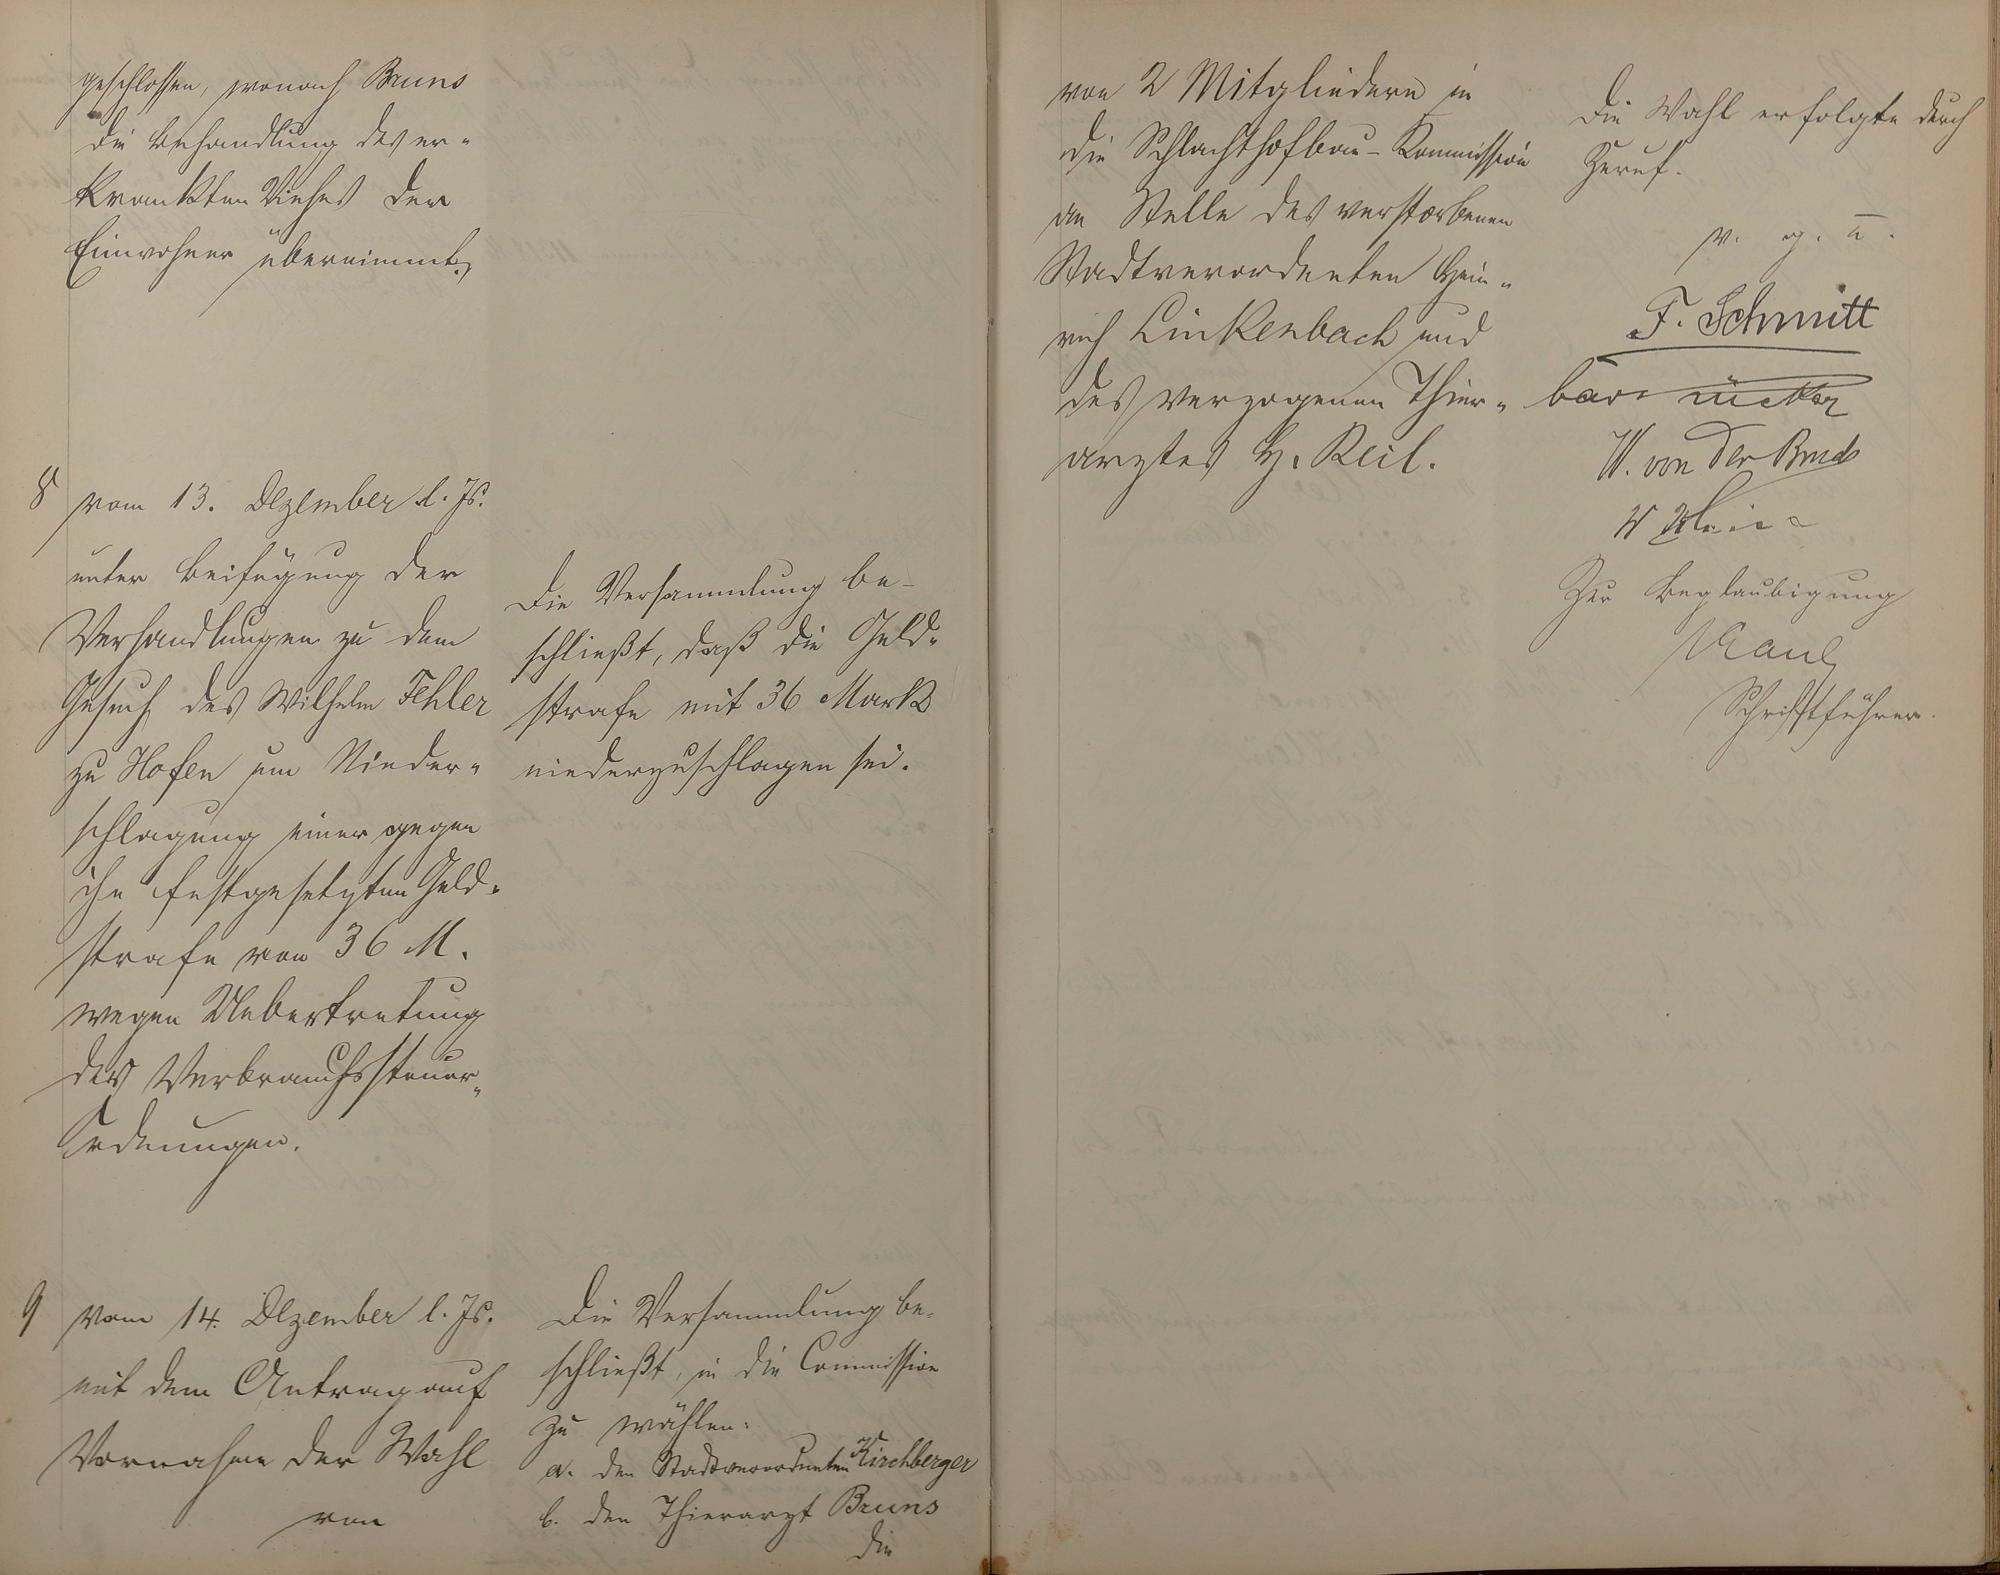 geschlossen, wonach Bruns
die Behandlung des er-
krankten Viehes der
Einwohner übernimmt.
8 vom 13. Dezember l. Js.
unter Beifügung der
Verhandlungen zu dem
Gesuch des Wilhelm Fehler
zu Hofen um Nieder-
schlagung einer gegen
ihn festgesetzten Geld-
strafe von 36 M.
wegen Uebertretung
der Verbrauchssteuer-
Ordnungen.
Die Versammlung be-
schließt, daß die Geld-
strafe mit 36 Mark
niederzuschlagen sei.
9 vom 14. Dezember l. Js.
mit dem Antrag auf
Vornahme der Wahl
von
Die Versammlung be-
schließt, in die Commission
zu wählen:
a. den Stadtverordneten Kirchberger
b. den Thierarzt Bruns
Die
von 2 Mitgliedern in
die Schlachthofbau-Kommission
an Stelle des verstorbenen
Stadtverordneten Hein-
rich Linkenbach und
des verzogenen Thier-
arztes H. Keil.
Die Wahl erfolgte durch
Zuruf.
v. g. u.
F. Schmitt
W. von der
W Klein
Zur Beglaubigung
Schriftführer.